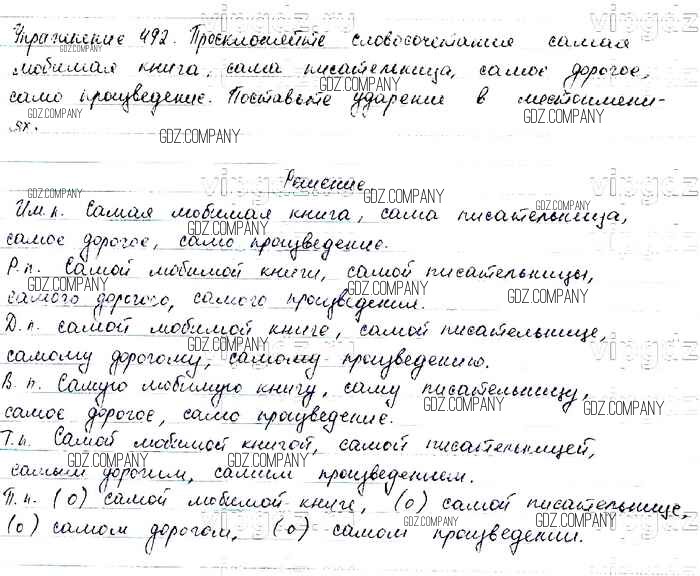 Упражнение 492. Просклоняйте словосочетания самая
любимая книга, сама писательница, самое дорогое,
само произведение. Поставьте ударение в местоимени-
ях.
Решение.
Им.п. Самая любимая книга, сама писательница,
самое дорогое, само произведение.
Р.п. Самой любимой книги, самой писательницы,
самого дорогого, самого произведения.
Д.п. самой любимой книге, самой писательнице,
самому дорогому, самому произведению.
В.п. Самую любимую книгу, саму писательницу,
самое дорогое, само произведение.
Т.п. Самой любимой книгой, самой писательницей,
самым дорогим, самим произведением.
П.п. (о) самой любимой книге, (о) самой писательнице,
(о) самом дорогом, (о) самом произведении.
GDZ.COMPANY
vipgdz